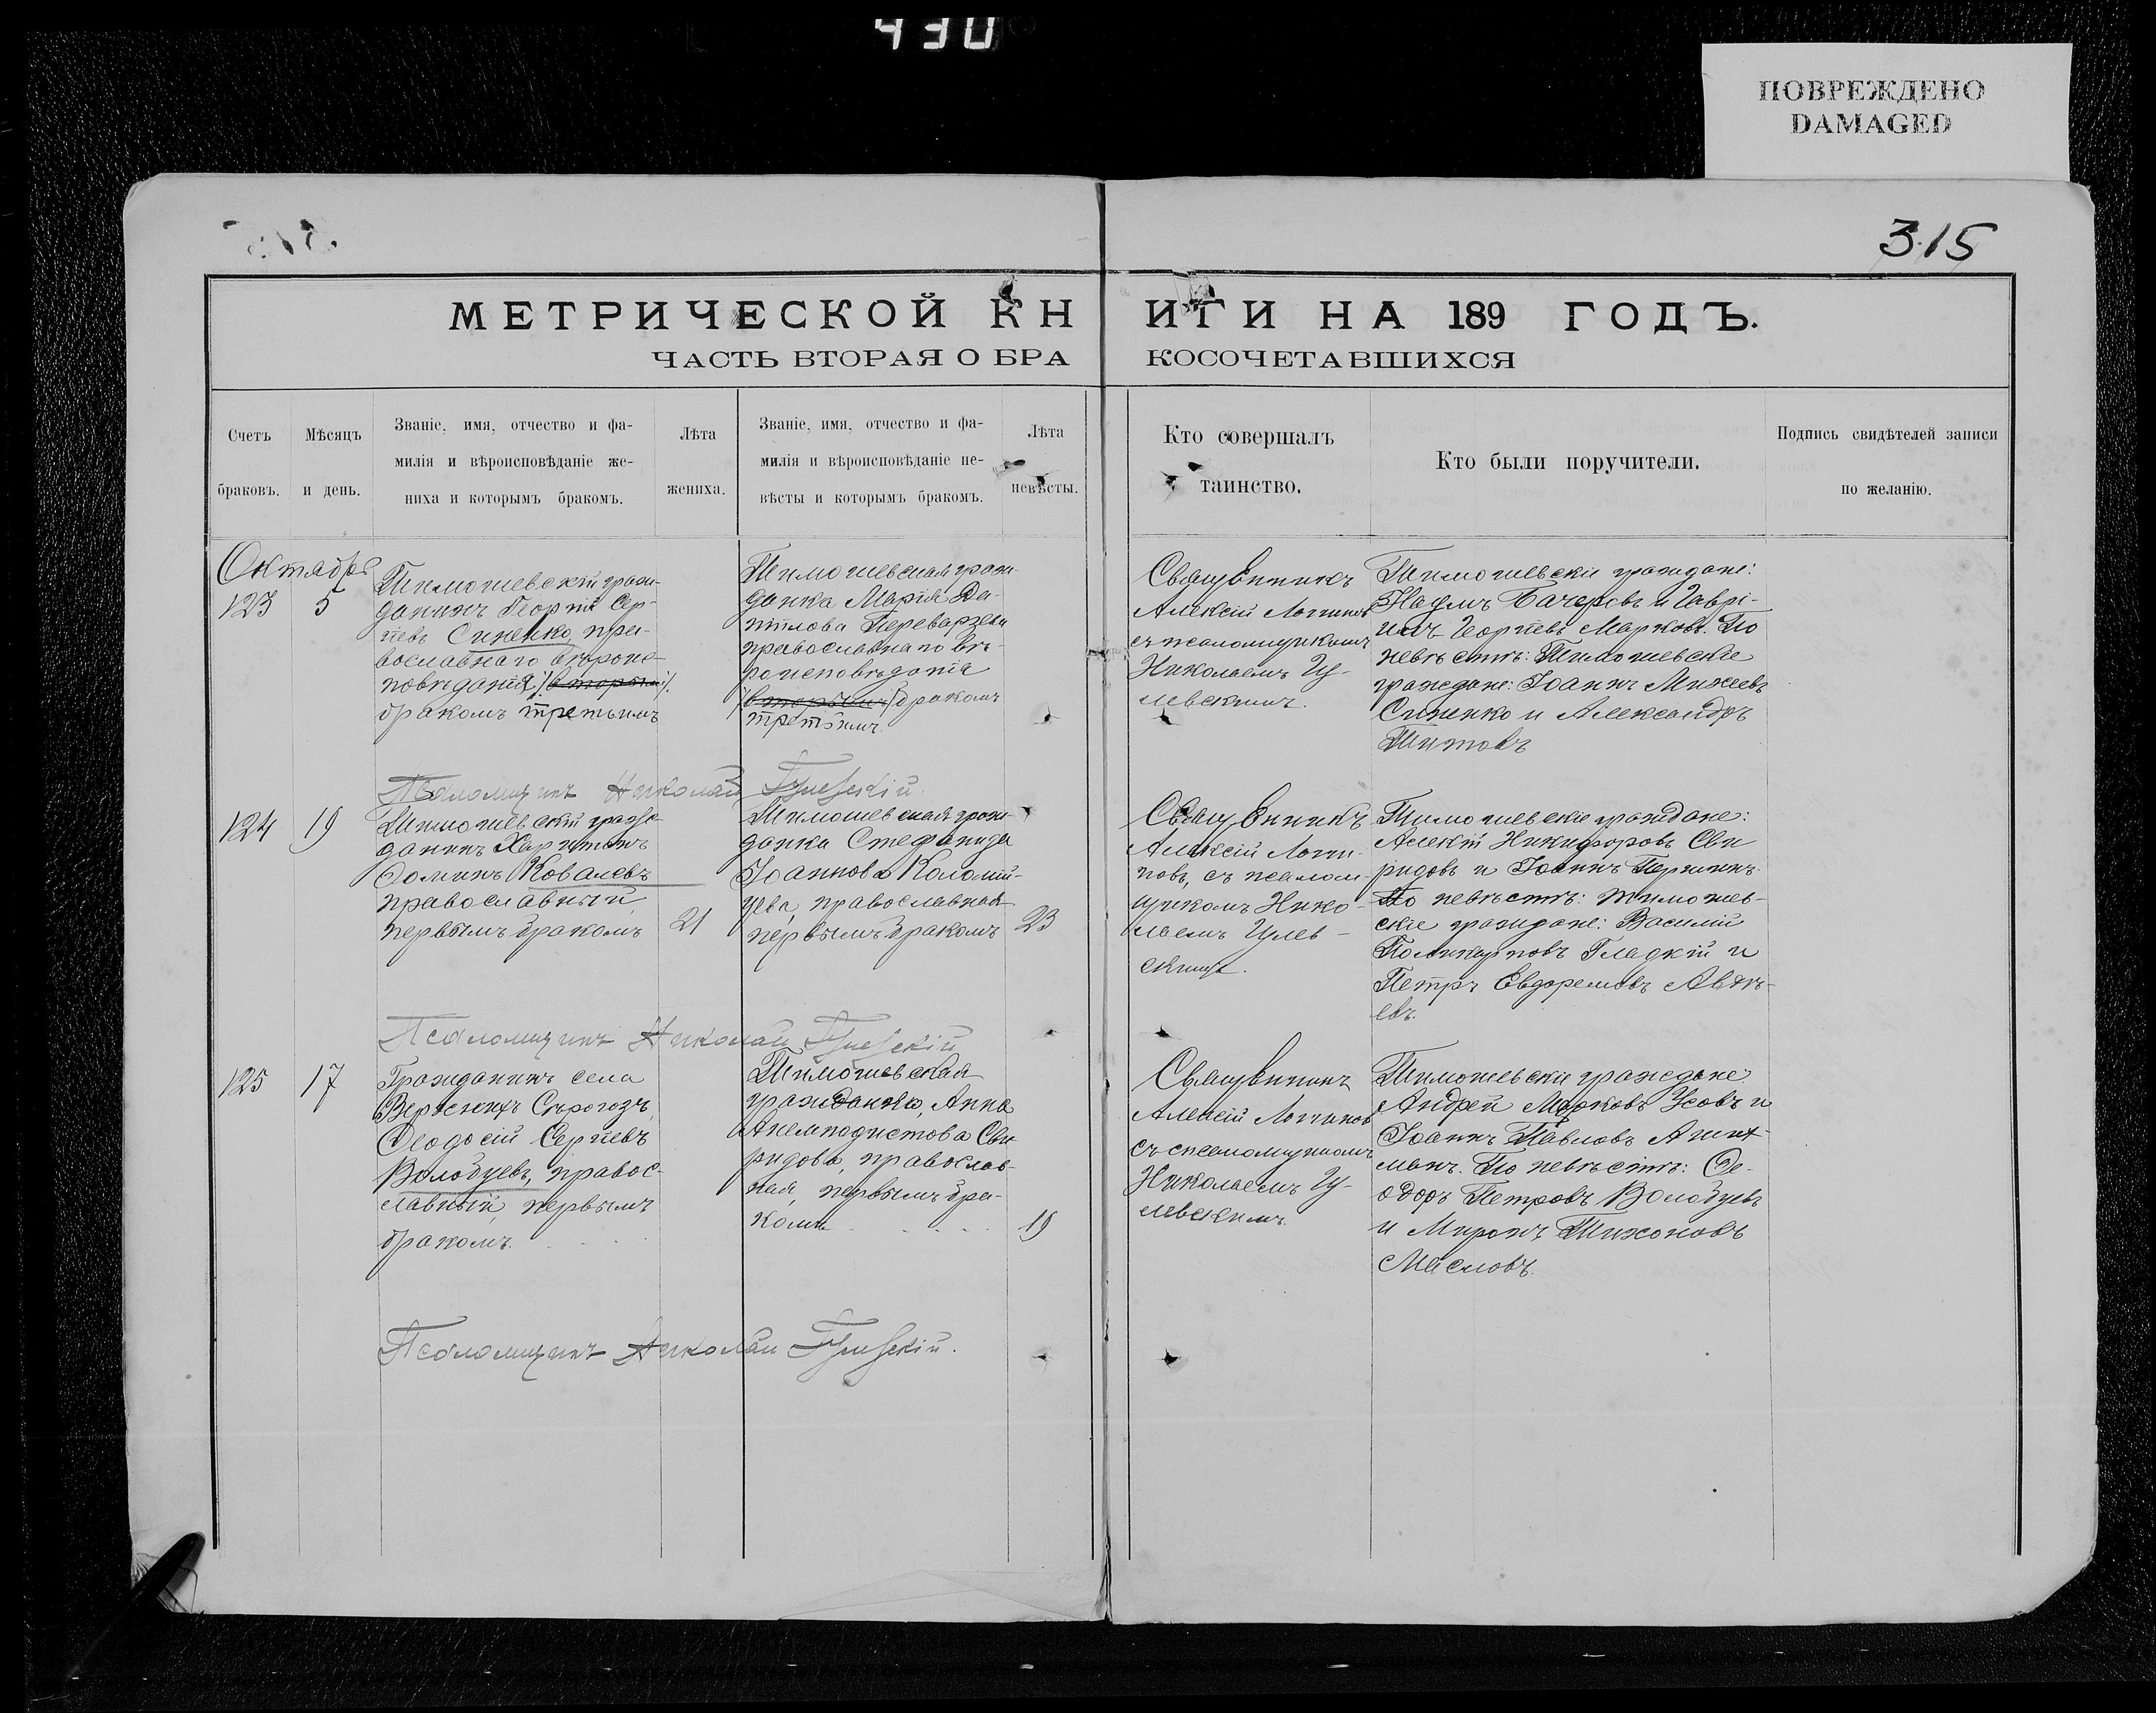 430
ПОВРЕЖДЕНО
DAMAGED
315
МЕТРИЧЕСКОЙ КНИГИ НА 189 ГОДЪ.
ЧАСТЬ ВТОРАЯ О БРАКОСОЧЕТАВШИХСЯ
Счетъ браковъ.
Мѣсяцъ и день.
Званіе, имя, отчество и фа-
милія и вѣроисповѣданіе же-
ниха и которымъ бракомъ.
Лѣта жениха.
Званіе, имя, отчество и фа-
милія и вѣроисповѣданіе не-
вѣсты и которымъ бракомъ.
Лѣта невѣсты.
Кто совершалъ
таинство.
Кто были поручители.
Подпись свидѣтелей записи
по желанію.
Октября
123 5
Тимошевскій граж-
данинъ Георгій Сер-
гіевъ Синенко, пра-
вославнаго вѣроис-
повѣданія /вторымъ/.
бракомъ третьимъ
Тимошевская граж-
данка Марія Да-
ніилова
православнаго вѣ-
роисповѣданія
/вторымъ/ бракомъ
третьимъ.
Священникъ
Алексій Логгиновъ
съ псаломщикомъ
Николаемъ Гу-
левскимъ.
Тимошевскіе граждане:
Наумъ Бачеровъ и Гаврі-
илъ Георгіевъ Марковъ. По
невѣстѣ: Тимошевскіе
граждане: Іоаннъ Михеевъ
Синенко и Александръ
Титовъ
Псаломщикъ Николай Гулевскій.
124 19
Тимошевскій граж-
данинъ Харитонъ
Ѳоминъ Ковалевъ
православный,
первымъ бракомъ
21
Тимошевская граж-
данка Стефанида
Іоаннова Коломій-
цева, православная
первымъ бракомъ
23
Священникъ
Алексій Логги-
новъ, съ псалом-
щикомъ Нико-
лаемъ Гулев-
скимъ.
Тимошевскіе граждане:
Алексій Никифоровъ Сви
ридовъ и Іоаннъ
По невѣстѣ: Тимошев-
скіе граждане: Василій
Поликарповъ Гладкій и
Петръ Евдоремовъ Авдѣ-
евъ.
Псаломщикъ Николай Гулевскій
125 17
Гражданинъ села
Верхнихъ Сѣрогозъ,
Ѳеодосій Сергіевъ
Володуевъ, правос-
лавный, первымъ
бракомъ.
Тимошевская
гражданка, Анна
Анемподистова Сви
ридова, православ-
ная, первымъ бра-
комъ
19
Священникъ
Алексій Логгиновъ
съ псаломщикомъ
Николаемъ Гу-
левскимъ.
Тимошевскіе граждане:
Андрей Марковъ Усовъ и
Іоаннъ Павловъ
По невѣстѣ: Ѳе-
одоръ Петровъ Володуевъ
и Миронъ Тихоновъ
Масловъ.
Псаломщикъ Николай Гулевскій.